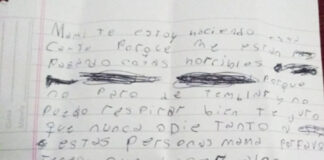 Mami te estoy haciendo esta
Carta Porque me estan
Pasando cosas horribles
Porque
no Paro de temblar y no
Puedo respirar bien te juro
que nunca odie tanto a
estas Personas mama Porfavor